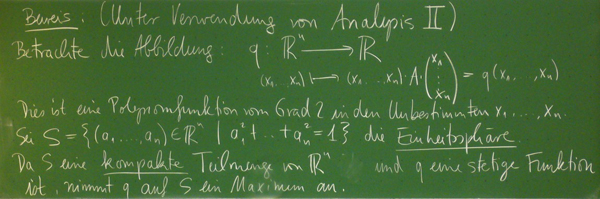 Beweis: (Unter Verwendung von Analysis II)
Betrachte die Abbildung: q: ℝⁿ ⟶ ℝ
(x₁ ... xₙ) ⟼ (x₁ ... xₙ)·A·(x₁ ⋮ xₙ) = q(x₁, ..., xₙ)
Dies ist eine Polynomfunktion vom Grad 2 in den Unbestimmten x₁, ..., xₙ.
Sei S = {(a₁, ..., aₙ) ∈ ℝⁿ | a₁² + ... + aₙ² = 1} die Einheitsphäre.
Da S eine kompakte Teilmenge von ℝⁿ und q eine stetige Funktion
ist, nimmt q auf S ein Maximum an.